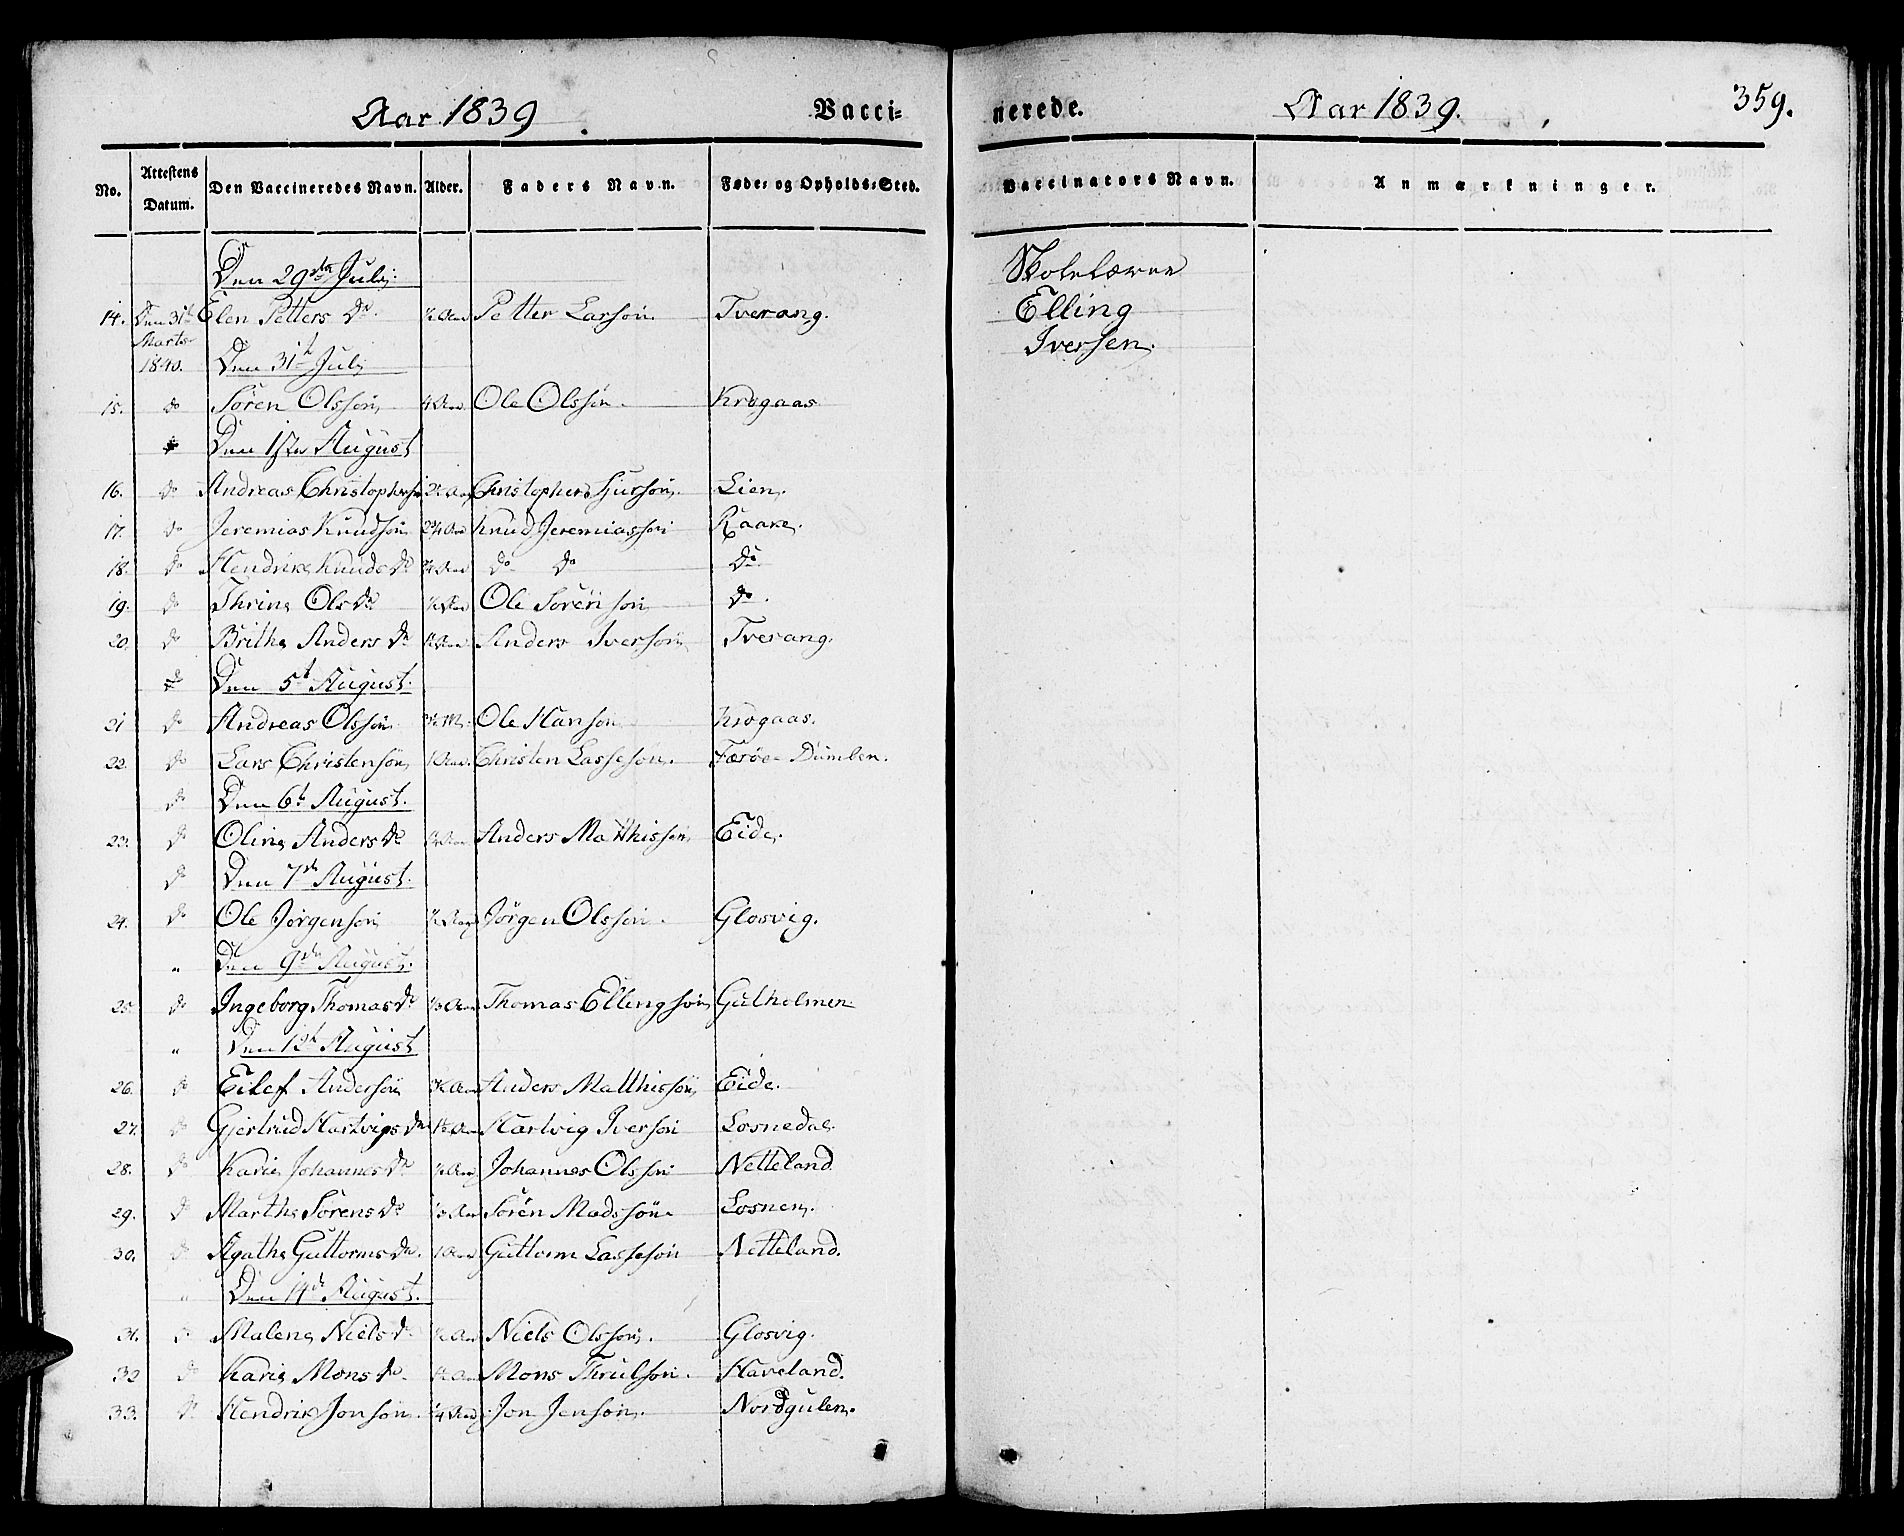 Aar 1839 Vacci-
No. Attestens Datum. Den Vaccineredes Navn. Alder. Faders Navn. Føde- og Opholds-Sted.
Den 29de Juli
14. Den 31te Elen Petters Dr. 1/2 Aar Petter Larsøn Tverang.
Marts
1840. Den 31te Juli
15. do Søren Olssøn Aar. Ole Olssøn Krogaas
Den 1ste August
16. do Andreas Christophersøn Aar Christopher Lien.
17. do Jeremias Knudsøn Aar Knud Jeremiassøn Raake.
18. do Hendrike Knuds Dr Aar do do do
19. do Thrine Ols Dr Aar Ole Sørensøn do.
20. do Brithe Anders Dr Aar Anders Iversøn Tverang.
do Den 5te August.
21 do Andreas Olssøn M. Ole Hansøn Krogaas.
22. do Lars Christensøn 1 Aar. Christen Lassesøn. Færøe Dumben.
do Den 6te August.
23. do Oline Anders Dr Aar Anders Matthissøn Eide.
do Den 7de August.
24. do Ole Jørgensøn 1/2 Aar Jørgen Olssøn. Glosvig.
" Den 9de August.
25. do Ingeborg Thomas Dr 1/3 Aar Thomas Ellingsøn Gulholmen
" Den 12te August
26. do Eilef Andersøn Aar Anders Matthissøn Eide.
27. do Gjertrud Hartvigs Dr Aar Hartvig Iversøn Losnedal.
28. do Karie Johannes Dr 1/2 Aar Johannes Olssøn Netteland
29. do Marthe Sørens Dr 1/3 Aar Søren Madssøn Losnen.
30. do Agathe Guttorms Dr. 1 Aar Guttorm Lassesøn Netteland.
" Den 14de August.
31. do Malene Niels Dr 1/2 Aar Niels Olssøn. Glosvig.
32 do Karie Mons Dr. Aar Mons Thrulsøn. Haveland.
33. do Hendrik Jonsøn. 1/4 Aar Jon Jensøn. Nordgulen.
nerede. Aar 1839. 359.
Vaccinators Navn. Anmærkninger.
Skolelærer
Elling
Iversen.